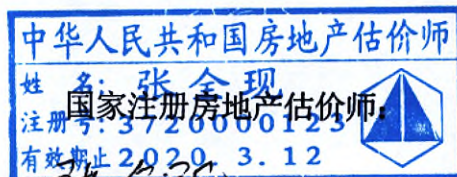 中华人民共和国房地产估价师
姓 名: 张全现
国家注册房地产估价师:
注册号: 3720000123
有效期止 2020. 3. 12